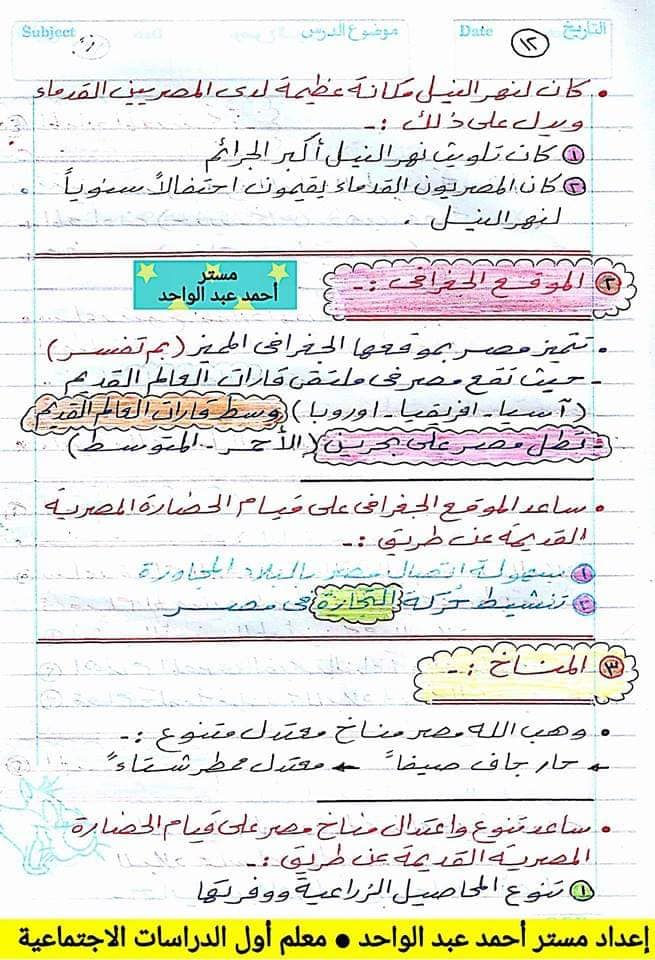 التاريخ
Date
١٢
موضوع الدرس
Subject
• كان لنهر النيل مكانة عظيمة لدى المصريين القدماء
ويدل على ذلك :-
١ كان تلويث نهر النيل أكبر الجرائم
٢ كان المصريون القدماء يقيمون احتفالاً سنوياً
لنهر النيل .
٢ الموقع الجغرافى :-
مستر
أحمد عبد الواحد
• تتميز مصر بموقعها الجغرافى المميز (بم تفسر)
- حيث تقع مصر فى ملتقى قارات العالم القديم
(آسيا - افريقيا - اوروبا) وسط قارات العالم القديم
- تطل مصر على بحرين (الأحمر - المتوسط)
• ساعد الموقع الجغرافى على قيام الحضارة المصرية
القديمة عن طريق :-
١ سهولة اتصال مصر بالبلاد المجاورة
٢ تنشيط حركة التجارة فى مصر
٣ المناخ :-
• وهب الله مصر مناخ معتدل متنوع :-
← حار جاف صيفاً ← معتدل ممطر شتاءً
• ساعد تنوع واعتدال مناخ مصر على قيام الحضارة
المصرية القديمة عن طريق :-
١ تنوع المحاصيل الزراعية ووفرتها
إعداد مستر أحمد عبد الواحد ● معلم أول الدراسات الاجتماعية